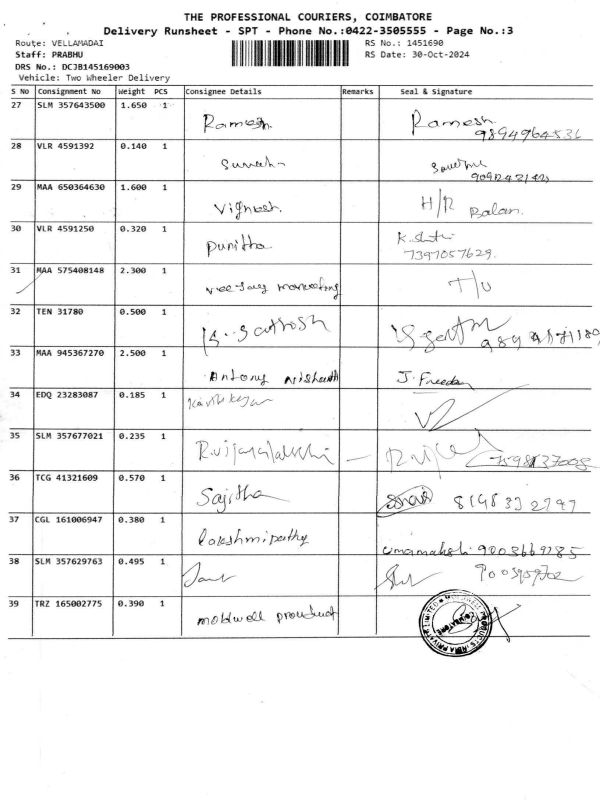 THE PROFESSIONAL COURIERS, COIMBATORE
Delivery Runsheet - SPT - Phone No.:0422-3505555 - Page No.:3
Route: VELLAMADAI
RS No.: 1451690
Staff: PRABHU
RS Date: 30-Oct-2024
DRS No.: DCJB145169003
Vehicle: Two Wheeler Delivery
S No Consignment No Weight PCS Consignee Details Remarks Seal & Signature
27 SLM 357643500 1.650 1 Ramesh Ramesh
9894964536
28 VLR 4591392 0.140 1
29 MAA 650364630 1.600 1 Vignesh H/R Balan
30 VLR 4591250 0.320 1 Punitha
7397057629
31 MAA 575408148 2.300 1 Vee Jay marketing T/U
32 TEN 31780 0.500 1 K. Santhosh
33 MAA 945367270 2.500 1 Antony J. Freeda
34 EDQ 23283087 0.185 1 Karthikeyan
35 SLM 357677021 0.235 1 R.vijayalakshmi
36 TCG 41321609 0.570 1 Sajitha
37 CGL 161006947 0.380 1 lakshmipathy
38 SLM 357629763 0.495 1
39 TRZ 165002775 0.390 1 moldwell product